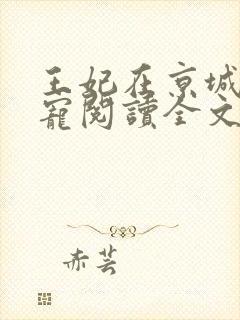 王妃在京城
寵閱讀全文
赤芸